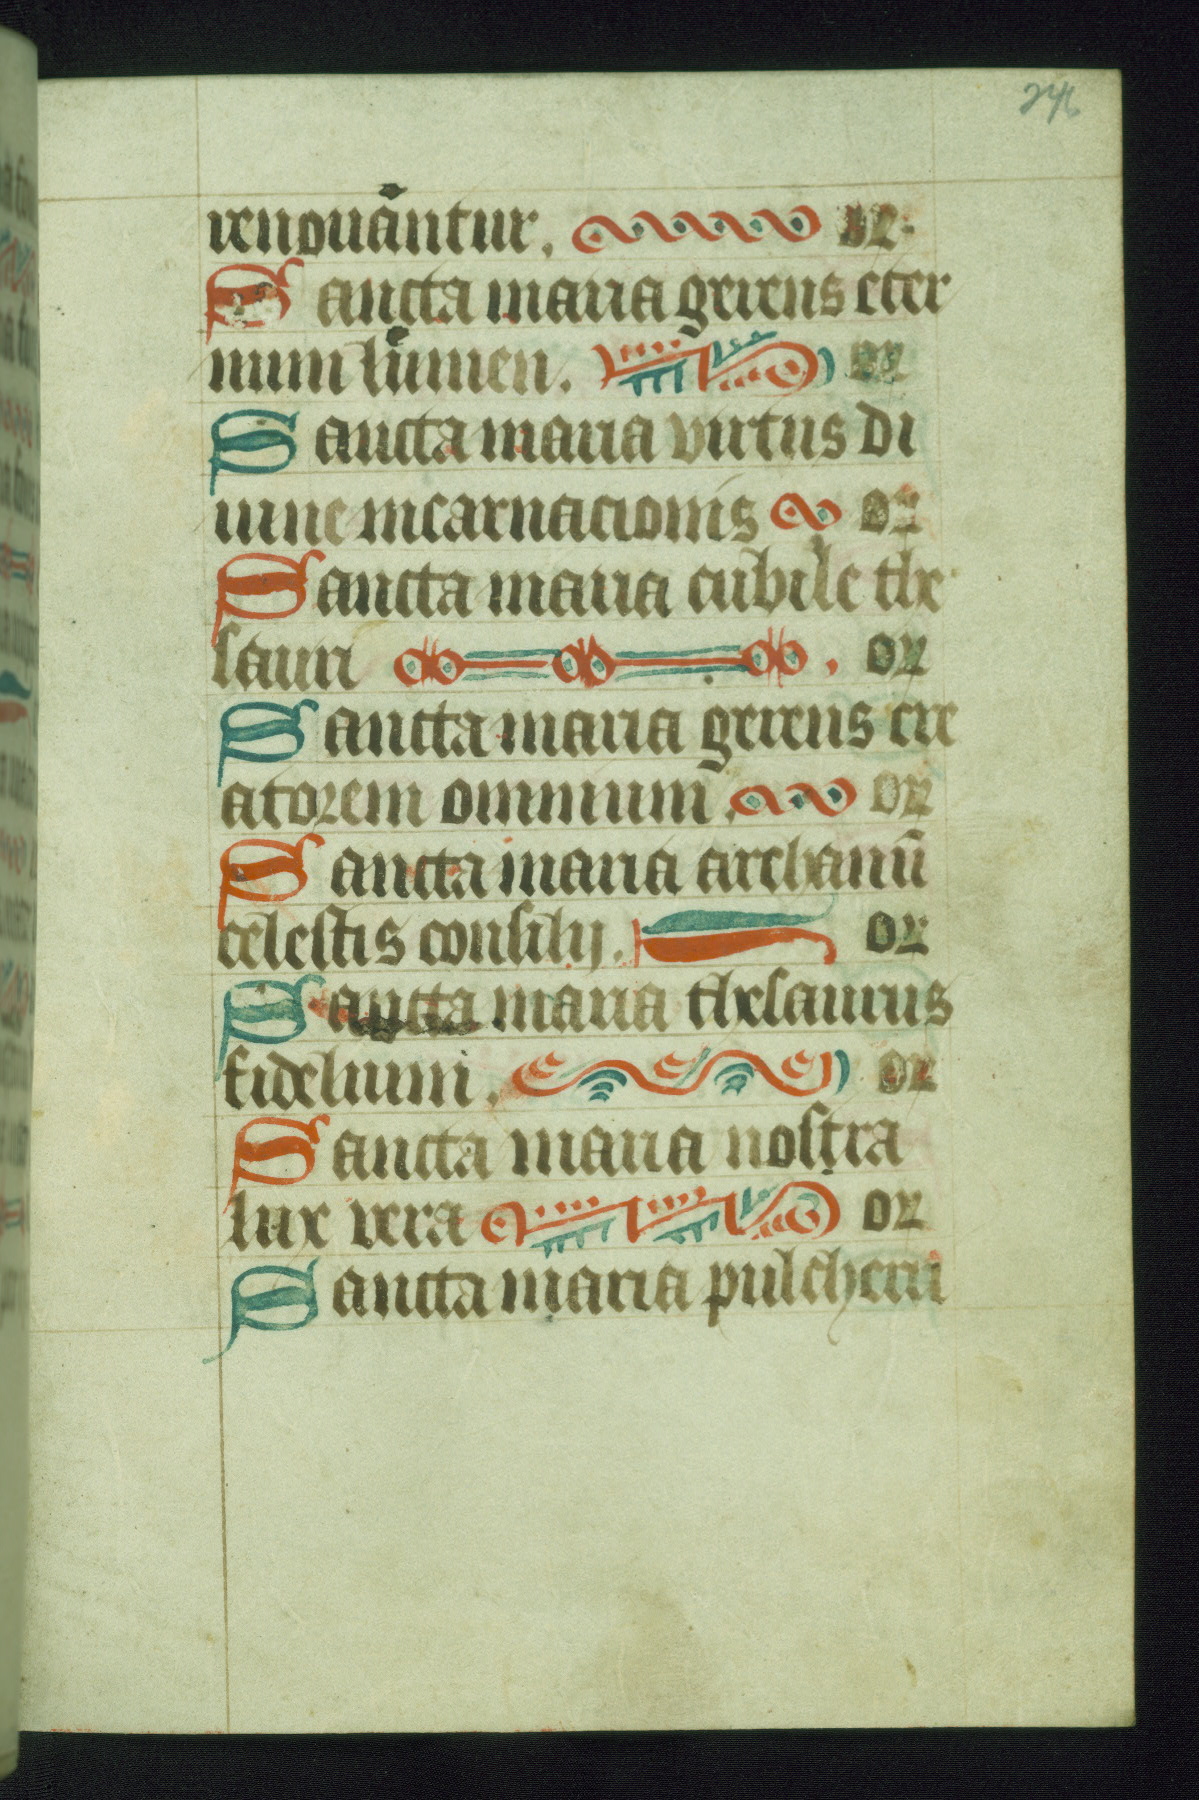 renouantur. or
Sancta maria gerens eter
num lumen. or
Sancta maria virtus di
uine incarnacionis or
Sancta maria cubile the
sauri or
Sancta maria gerens cre
atorem omnium. or
Sancta maria archanū
celestis consilij. or
Sancta maria thesaurus
fidelium. or
Sancta maria nostra
lux vera or
Sancta maria pulcherri